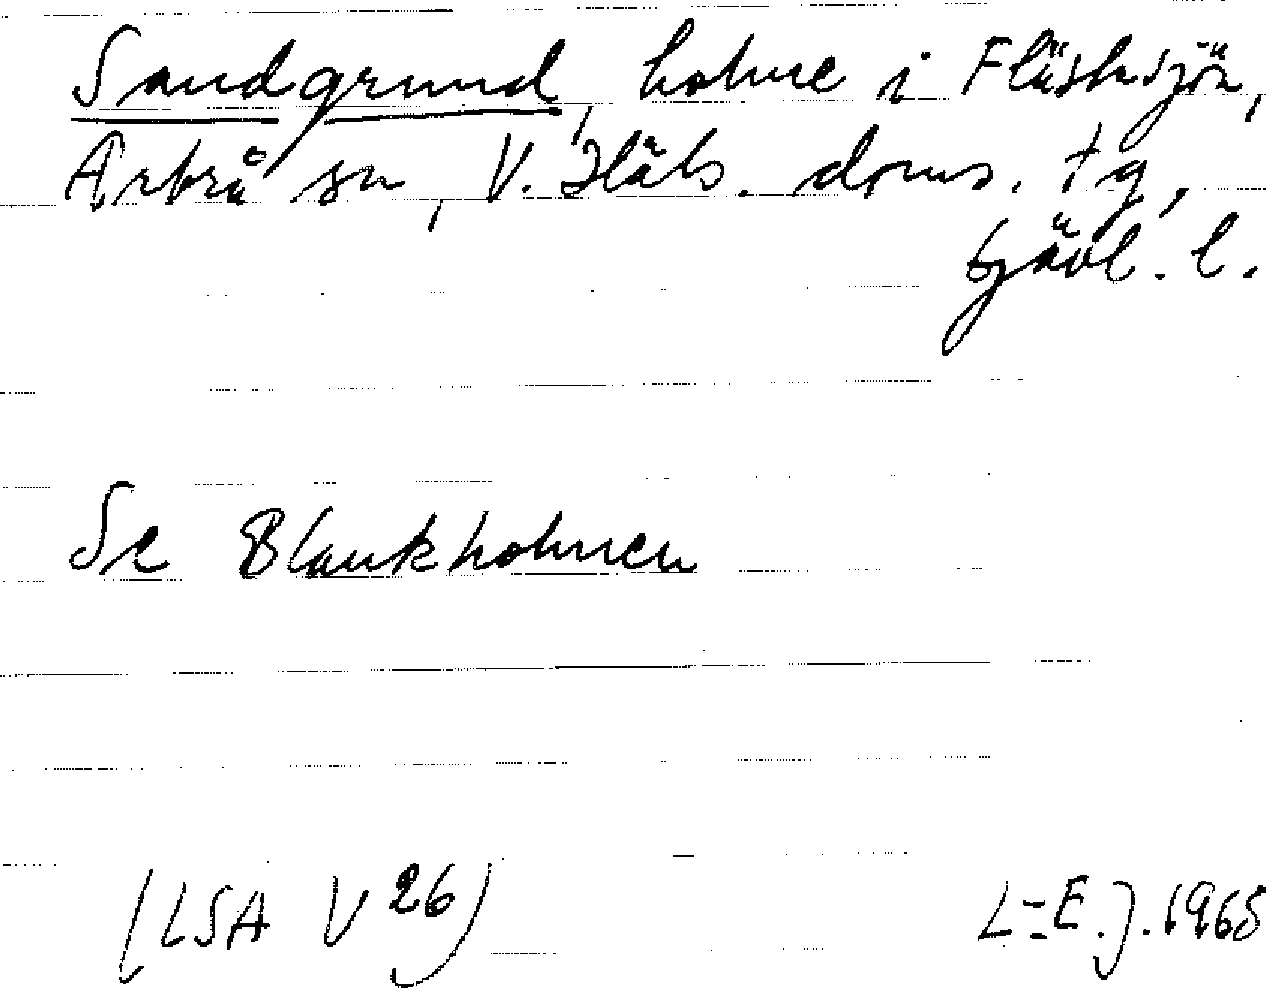 Sandgrund, holme i Fläsksjön,
Arbrå sn, V. Häls. doms. tg,
Gävl. l.
Se Blankholmen
(LSA V 26) L-E.J. 1968